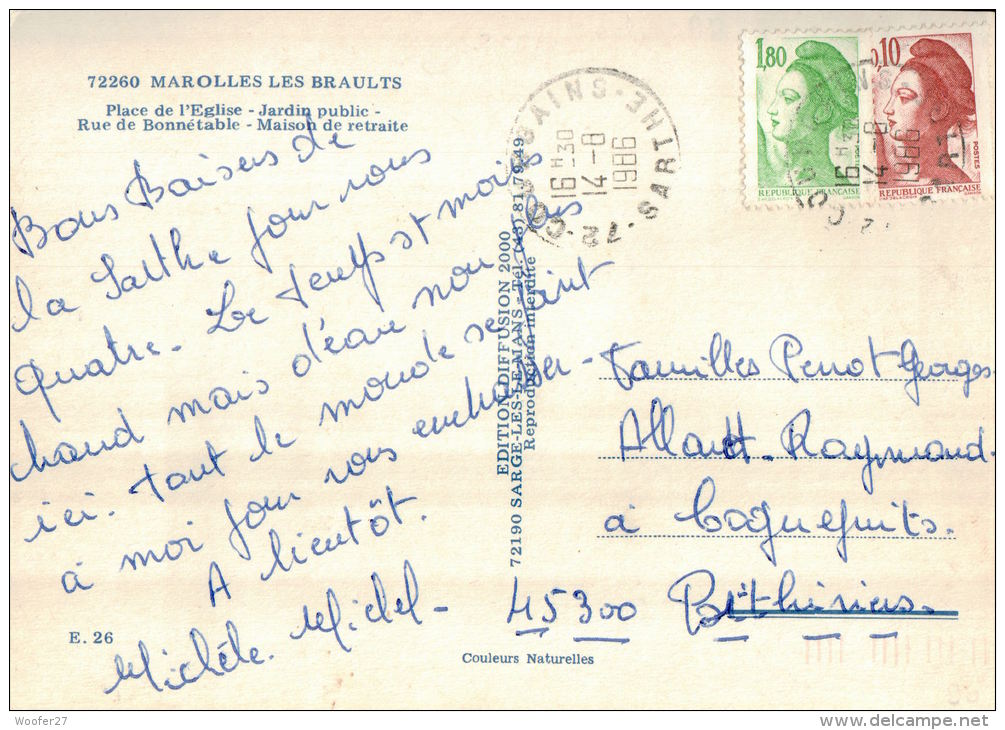 72260 MAROLLES LES BRAULTS
Place de l'Eglise - Jardin public -
Rue de Bonnétable - Maison de retraite
Bons Baisers de
la Sarthe pour vous
quatre. Le temps est moins
chaud mais d'eau nous
ici. tout le monde se joint
à moi pour vous embrasser -
A bientôt.
Michèle. Michel -
E. 26
EDITION DIFFUSION 2000
72190 SARGE-LES-LE-MANS - Tél. (43) 81 79 49
Reproduction interdite
Couleurs Naturelles
BAINS-SARTHE
16 H 30
14-8
1986
72
1,80
REPUBLIQUE FRANÇAISE
0,10
POSTES
REPUBLIQUE FRANÇAISE
16 H 30
14-8
1986
Familles Penot Georges
Allault. Raymond.
à
45300 Pithiviers.
Woofer27
delcampe.net